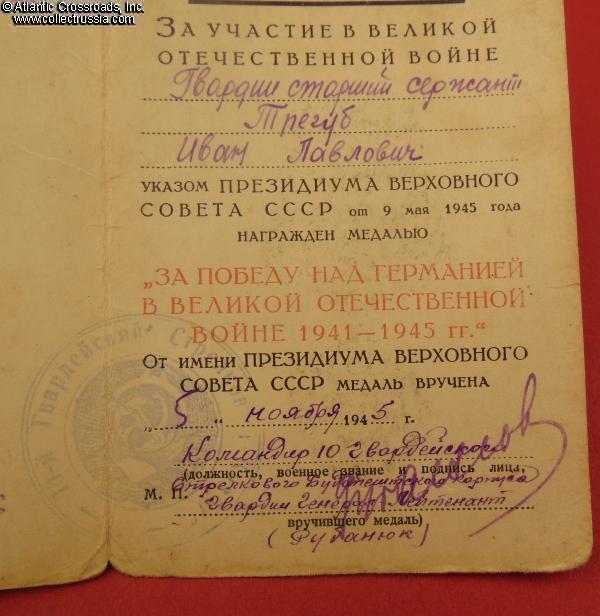 © Atlantic Crossroads, Inc.
www.collectrussia.com
ЗА УЧАСТИЕ В ВЕЛИКОЙ
ОТЕЧЕСТВЕННОЙ ВОЙНЕ
Гвардии старший сержант
Трегуб
Иван Павлович
УКАЗОМ ПРЕЗИДИУМА ВЕРХОВНОГО
СОВЕТА СССР от 9 мая 1945 года
НАГРАЖДЕН МЕДАЛЬЮ
„ЗА ПОБЕДУ НАД ГЕРМАНИЕЙ
В ВЕЛИКОЙ ОТЕЧЕСТВЕННОЙ
ВОЙНЕ 1941—1945 гг.“
ОТ ИМЕНИ ПРЕЗИДИУМА ВЕРХОВНОГО
СОВЕТА СССР МЕДАЛЬ ВРУЧЕНА
„5“ ноября 1945 г.
Командир 10 гвардейского
(должность, военное звание и подпись лица,
М. П. стрелкового Будапештского корпуса
гвардии генерал лейтенант
вручившего медаль)
(Рубанюк)
Гвардейский